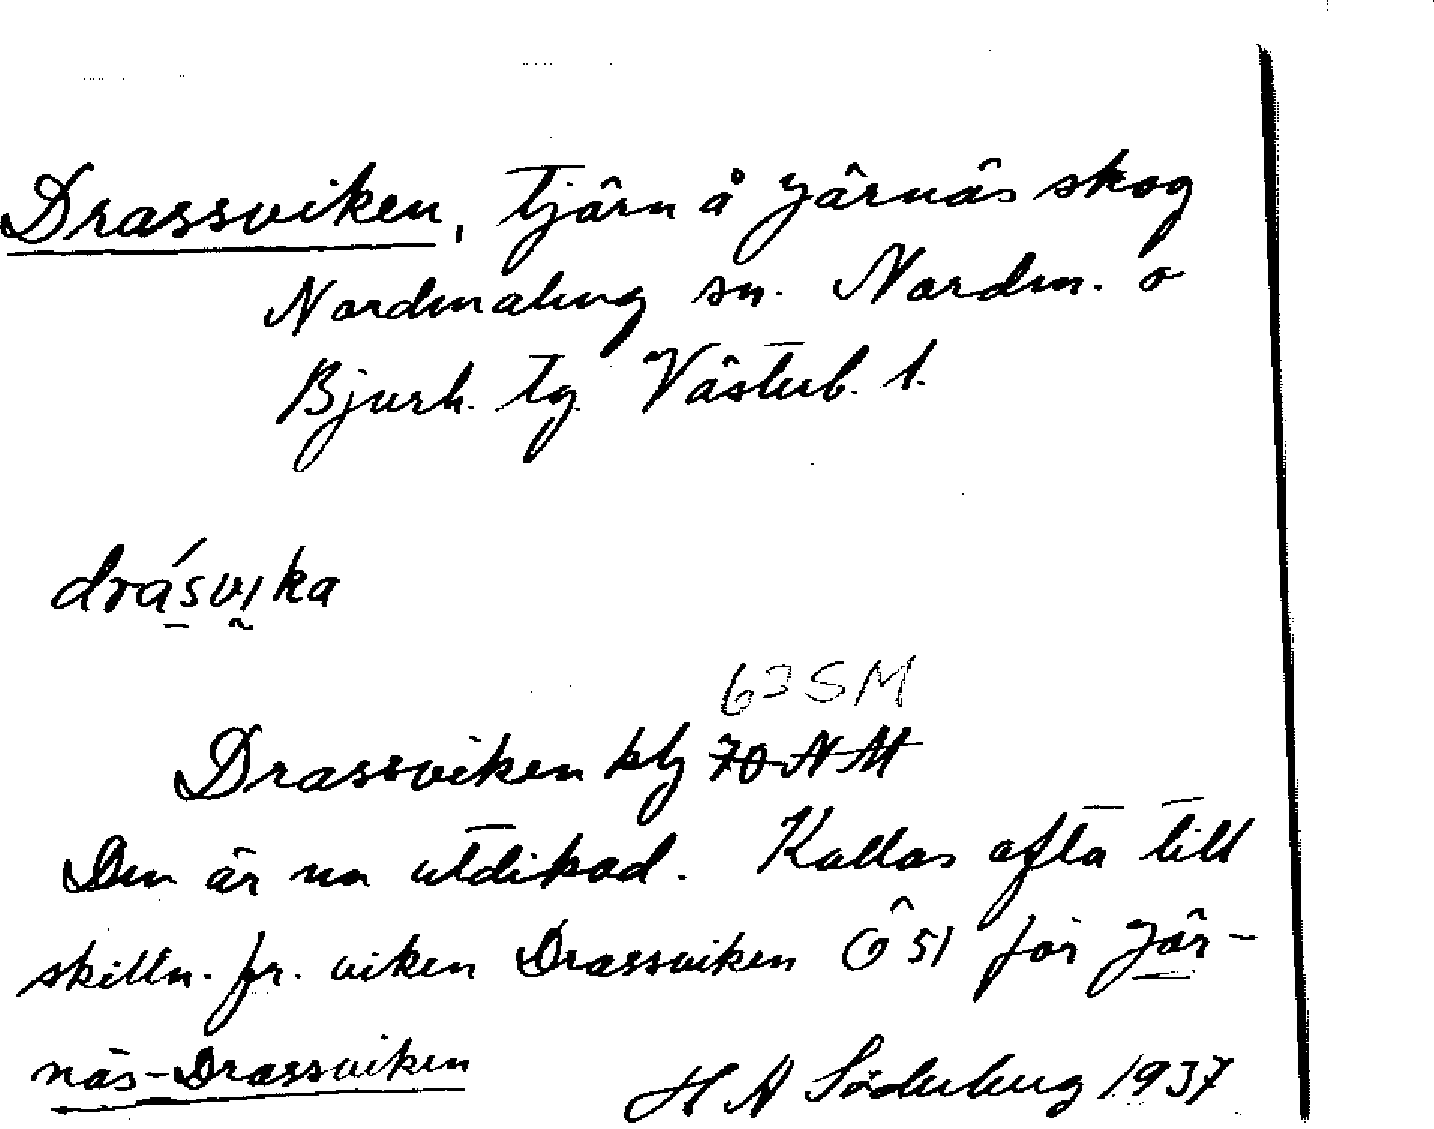 Drassviken, tjärn å Järnäs skog
Nordmaling sn. Nordm. o
Bjurh. tg Västerb. l.
drásvika
63 SM
Drassviken kbl 70 NM
Den är nu utdikad. Kallas ofta till
skilln. fr. viken Drassviken Ö 51 för Jär-
näs-Drassviken
H A Söderberg 1937